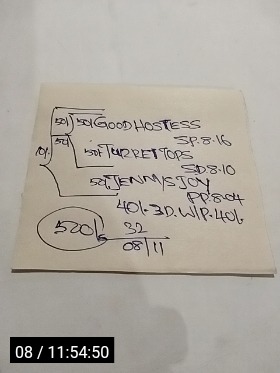 50/ 50/ GOOD HOSTESS
SP. 8.16
50/ TURRET TOPS
SD. 8.10
JENNIS JOY
PP. 8.04
40/. 3D. W/P. 40/.
520/-
32
08/11
08 / 11:54:50